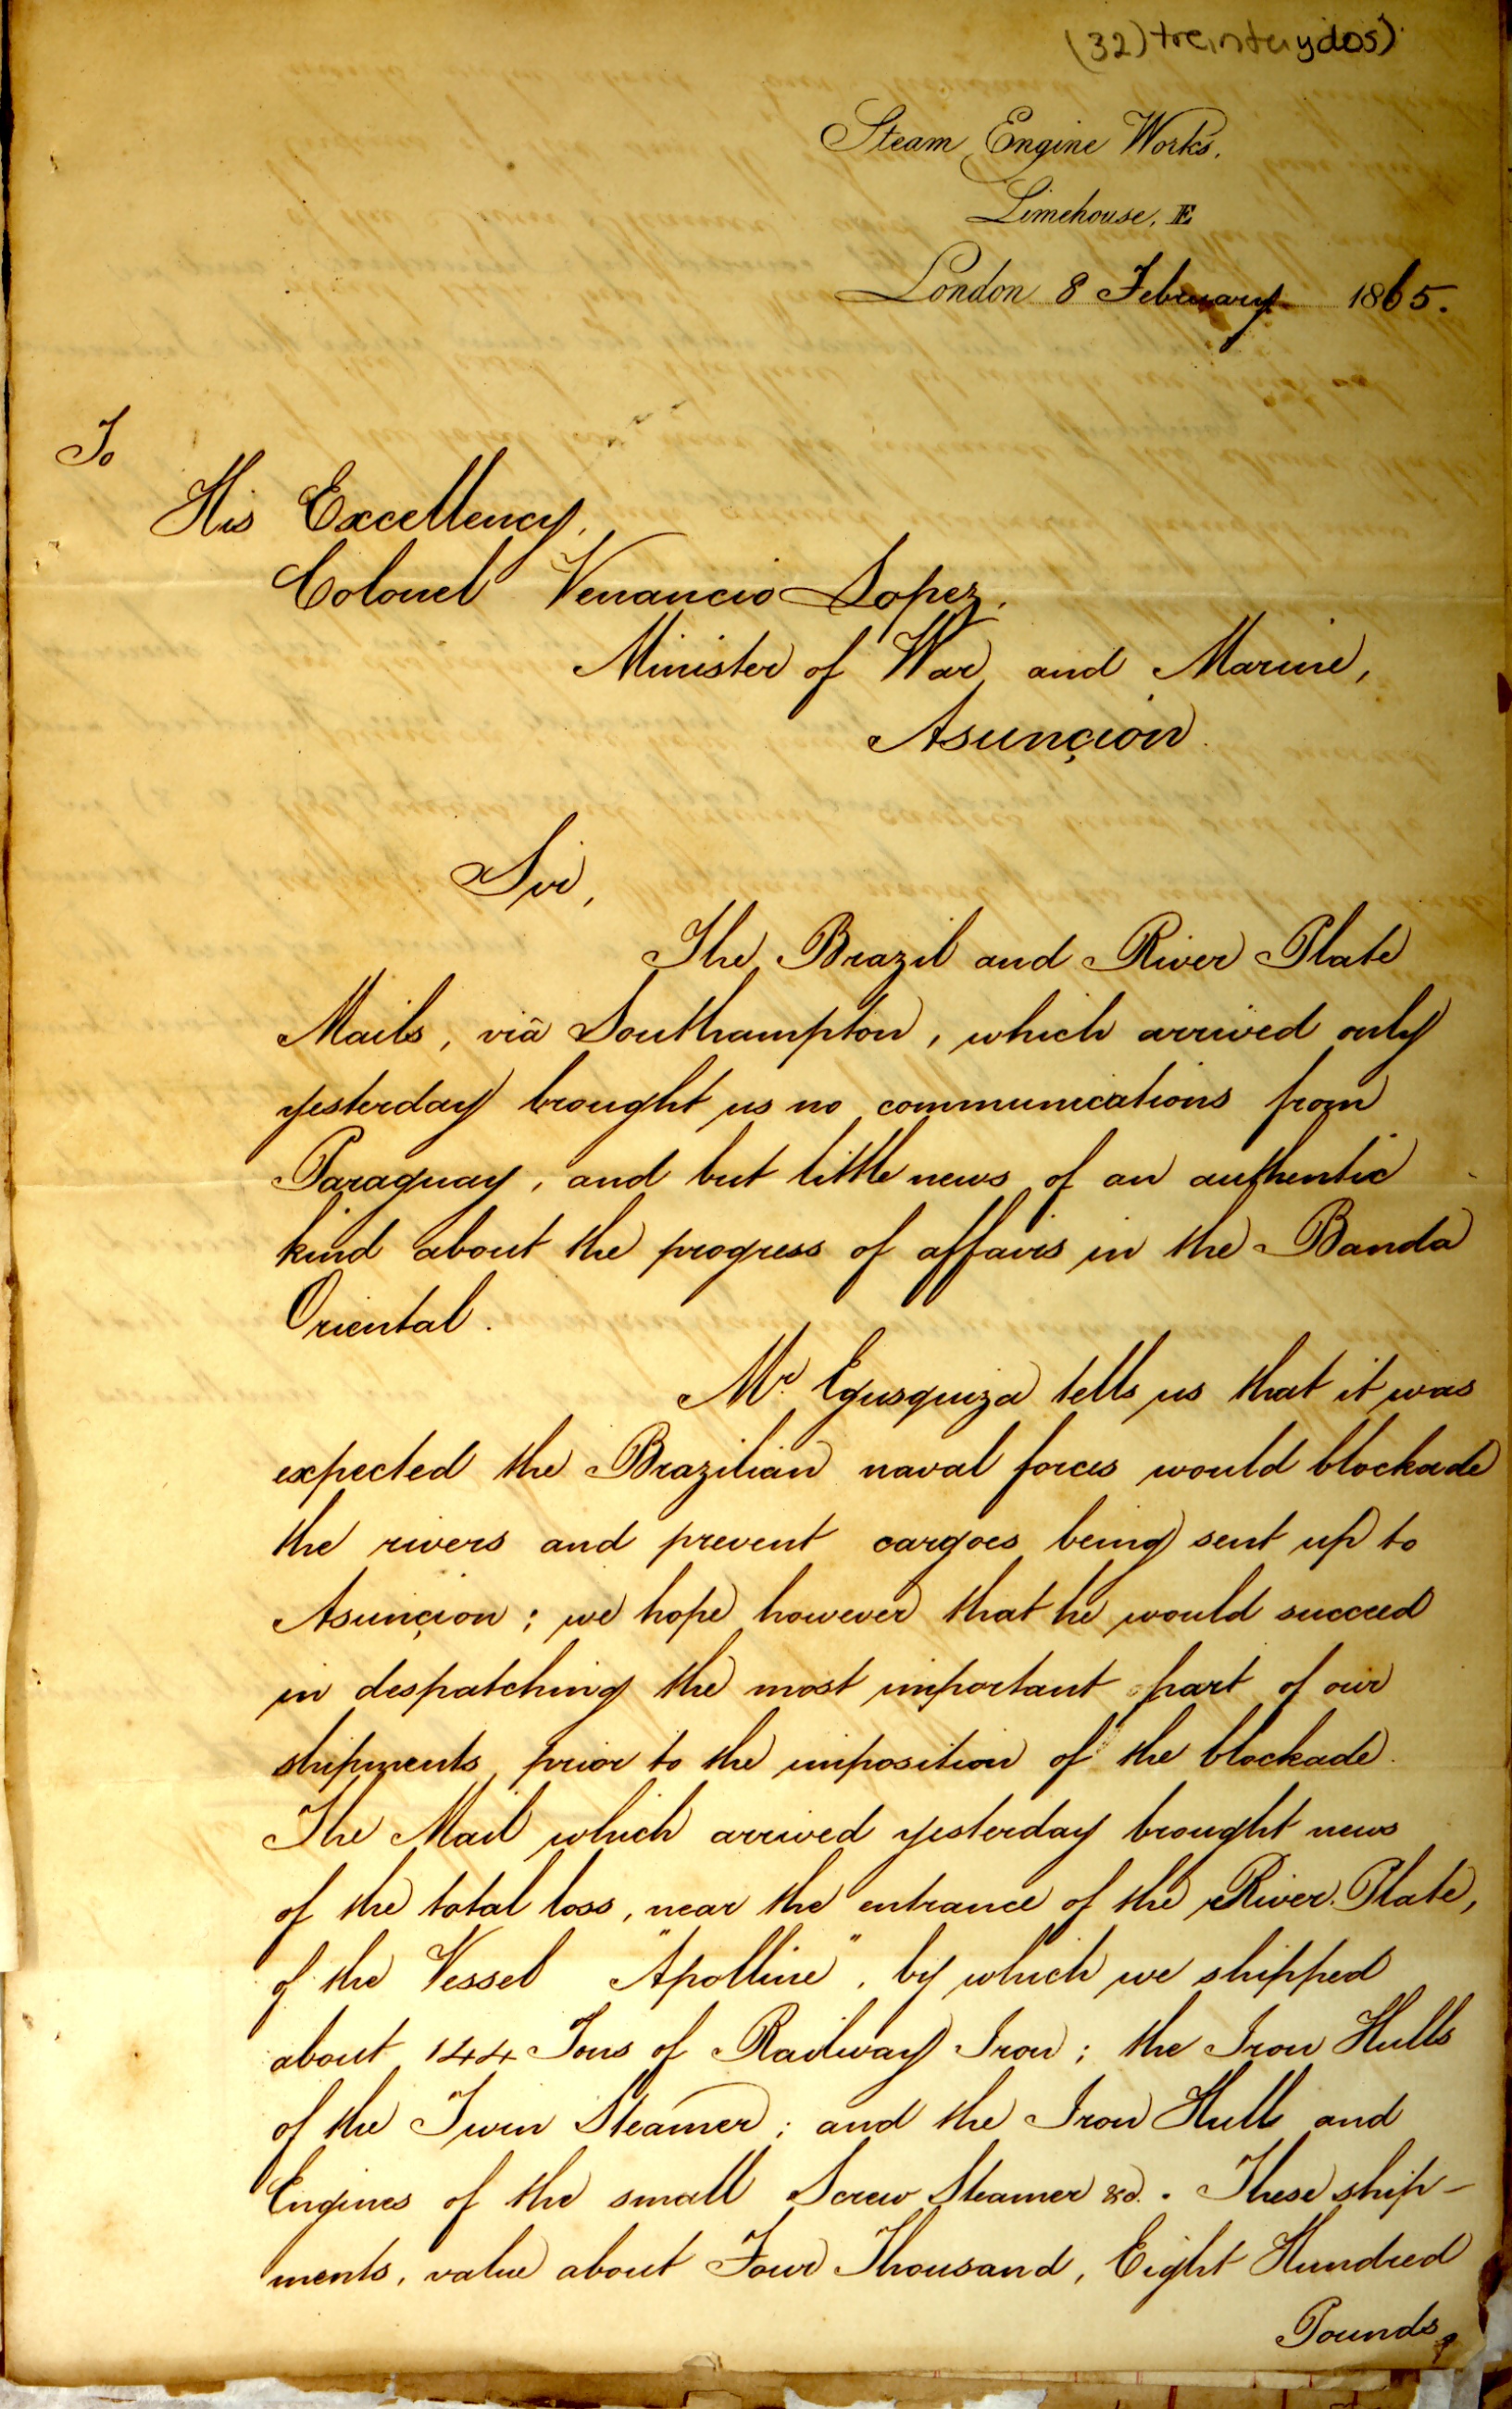 (32) treinta y dos)
Steam Engine Works,
Limehouse, E
London 8 February 1865.
To
His Excellency,
Colonel Venancio Lopez,
Minister of War and Marine,
Asunçion.
Sir,
The Brazil and River Plate
Mails, viâ Southampton, which arrived only
yesterday brought us no communications from
Paraguay, and but little news of an authentic
kind about the progress of affairs in the Banda
Oriental.
Mr. Egusquiza tells us that it was
expected the Brazilian naval forces would blockade
the rivers and prevent cargoes being sent up to
Asunçion; we hope however that he would succeed
in despatching the most important part of our
shipments prior to the imposition of the blockade.
The Mail which arrived yesterday brought news
of the total loss, near the entrance of the River Plate,
of the Vessel "Apolline", by which we shipped
about 144 Tons of Railway Iron; the Iron Hulls
of the Twin Steamer; and the Iron Hull and
Engines of the small Screw Steamer &c. These ship-
ments, value about Four Thousand, Eight Hundred
Pounds,